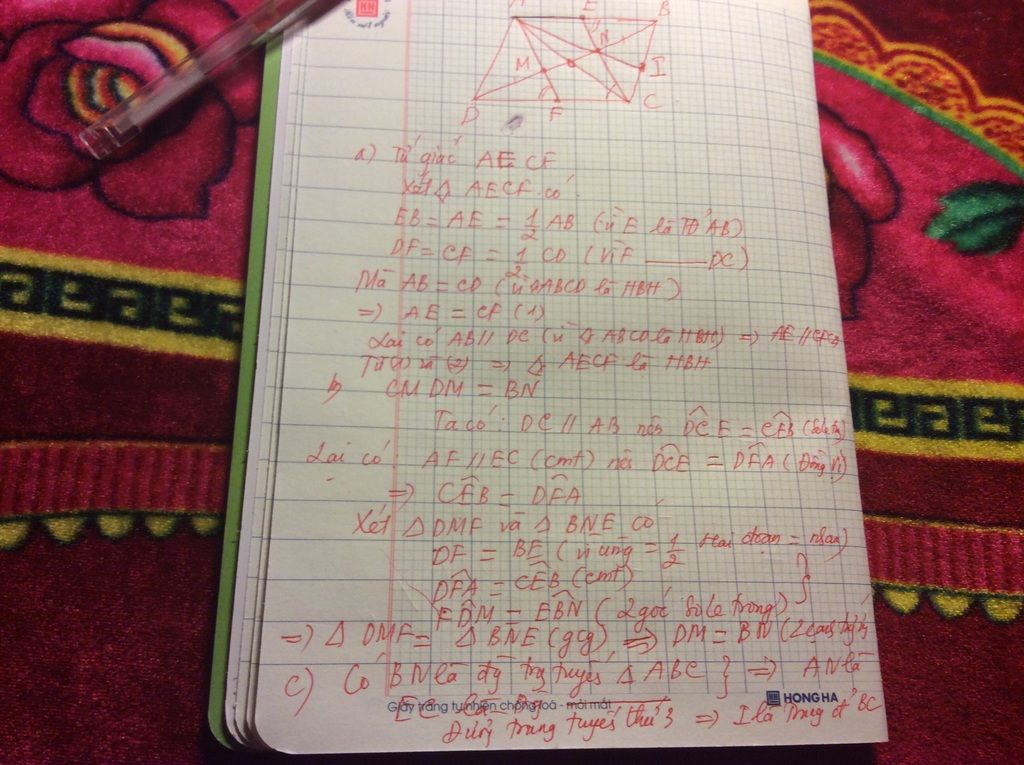 A E B
N
M I
D F C
a) Tứ giác AECF
Xét △ AECF có
EB = AE = 1/2 AB (vì E là TĐ AB)
DF = CF = 1/2 CD (Vì F ——— DC)
Mà AB = CD (vì ABCD là HBH)
=> AE = CF (1)
Lại có AB // DC (vì ABCD là HBH) => AE // CF (2)
Từ (1) và (2) => AECF là HBH
b) CM DM = BN
Ta có : DC // AB nên DĈE = CÊB (Sole tr)
Lại có AF // EC (cmt) nên DĈE = DF̂A (Đồng Vị)
=> CÊB = DF̂A
Xét △ DMF và △ BNE có
DF = BE (vì cùng = 1/2 Hai đoạn = nhau)
DF̂A = CÊB (cmt)
FD̂M = EB̂N (2 góc So le trong) }
=> △ DMF = △ BNE (gcg) => DM = BN (2 cạnh
c) Có BN là đg trg tuyến △ ABC } => AN là
HH HONG HA
Giấy trắng tự nhiên chống loá - mỏi mắt
EC là
Đường trung tuyến thứ 3 => I là trung đ BC